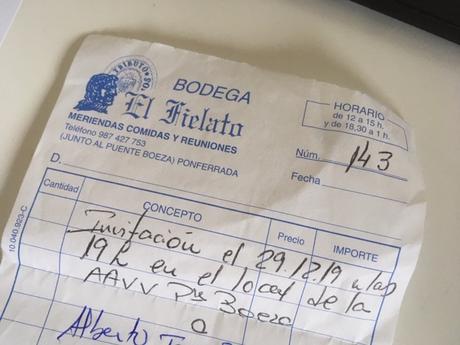 TRIBUTO
BODEGA
El Fielato
MERIENDAS COMIDAS Y REUNIONES
Teléfono 987 427 753
(JUNTO AL PUENTE BOEZA) PONFERRADA
HORARIO
de 12 a 15 h.
y de 18,30 a 1 h.
Núm. 143
Fecha
D.
Cantidad CONCEPTO Precio IMPORTE
Invitación el 29.12.19 a las
19h en el local de la
AAVV Boeza
a
Alberto
10.040.923-C